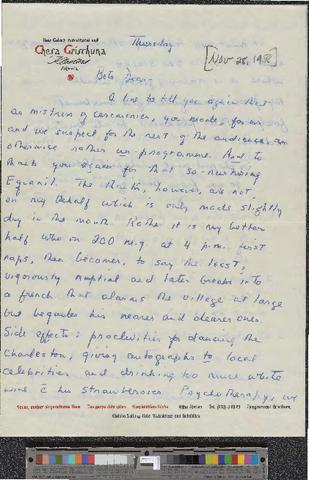 Chesa Grischuna
Klosters
Thursday
[Nov 28, 1956]
Bob Dear -
A line to tell you again that
as mistress of ceremonies, you made, for us
and we suspect for the rest of the audience, an
otherwise rather un-programme. And to
thank you again for that so-nourishing
Equanil. The thanks, however, are not
on my behalf which is only made slightly
dry in the mouth. Rather it is my better
half who on 200 m.g. at 4 p.m. first
naps, then becomes, to say the least,
vigorously nuptial and later breaks into
a french that alarms the village at large
but beguiles his nearer and dearer ones.
Side effects: proclivities for dancing the
Charleston, giving autographs to local
celebrities and drinking too much white
wine c̄ his strawberries. Psychotherapy we